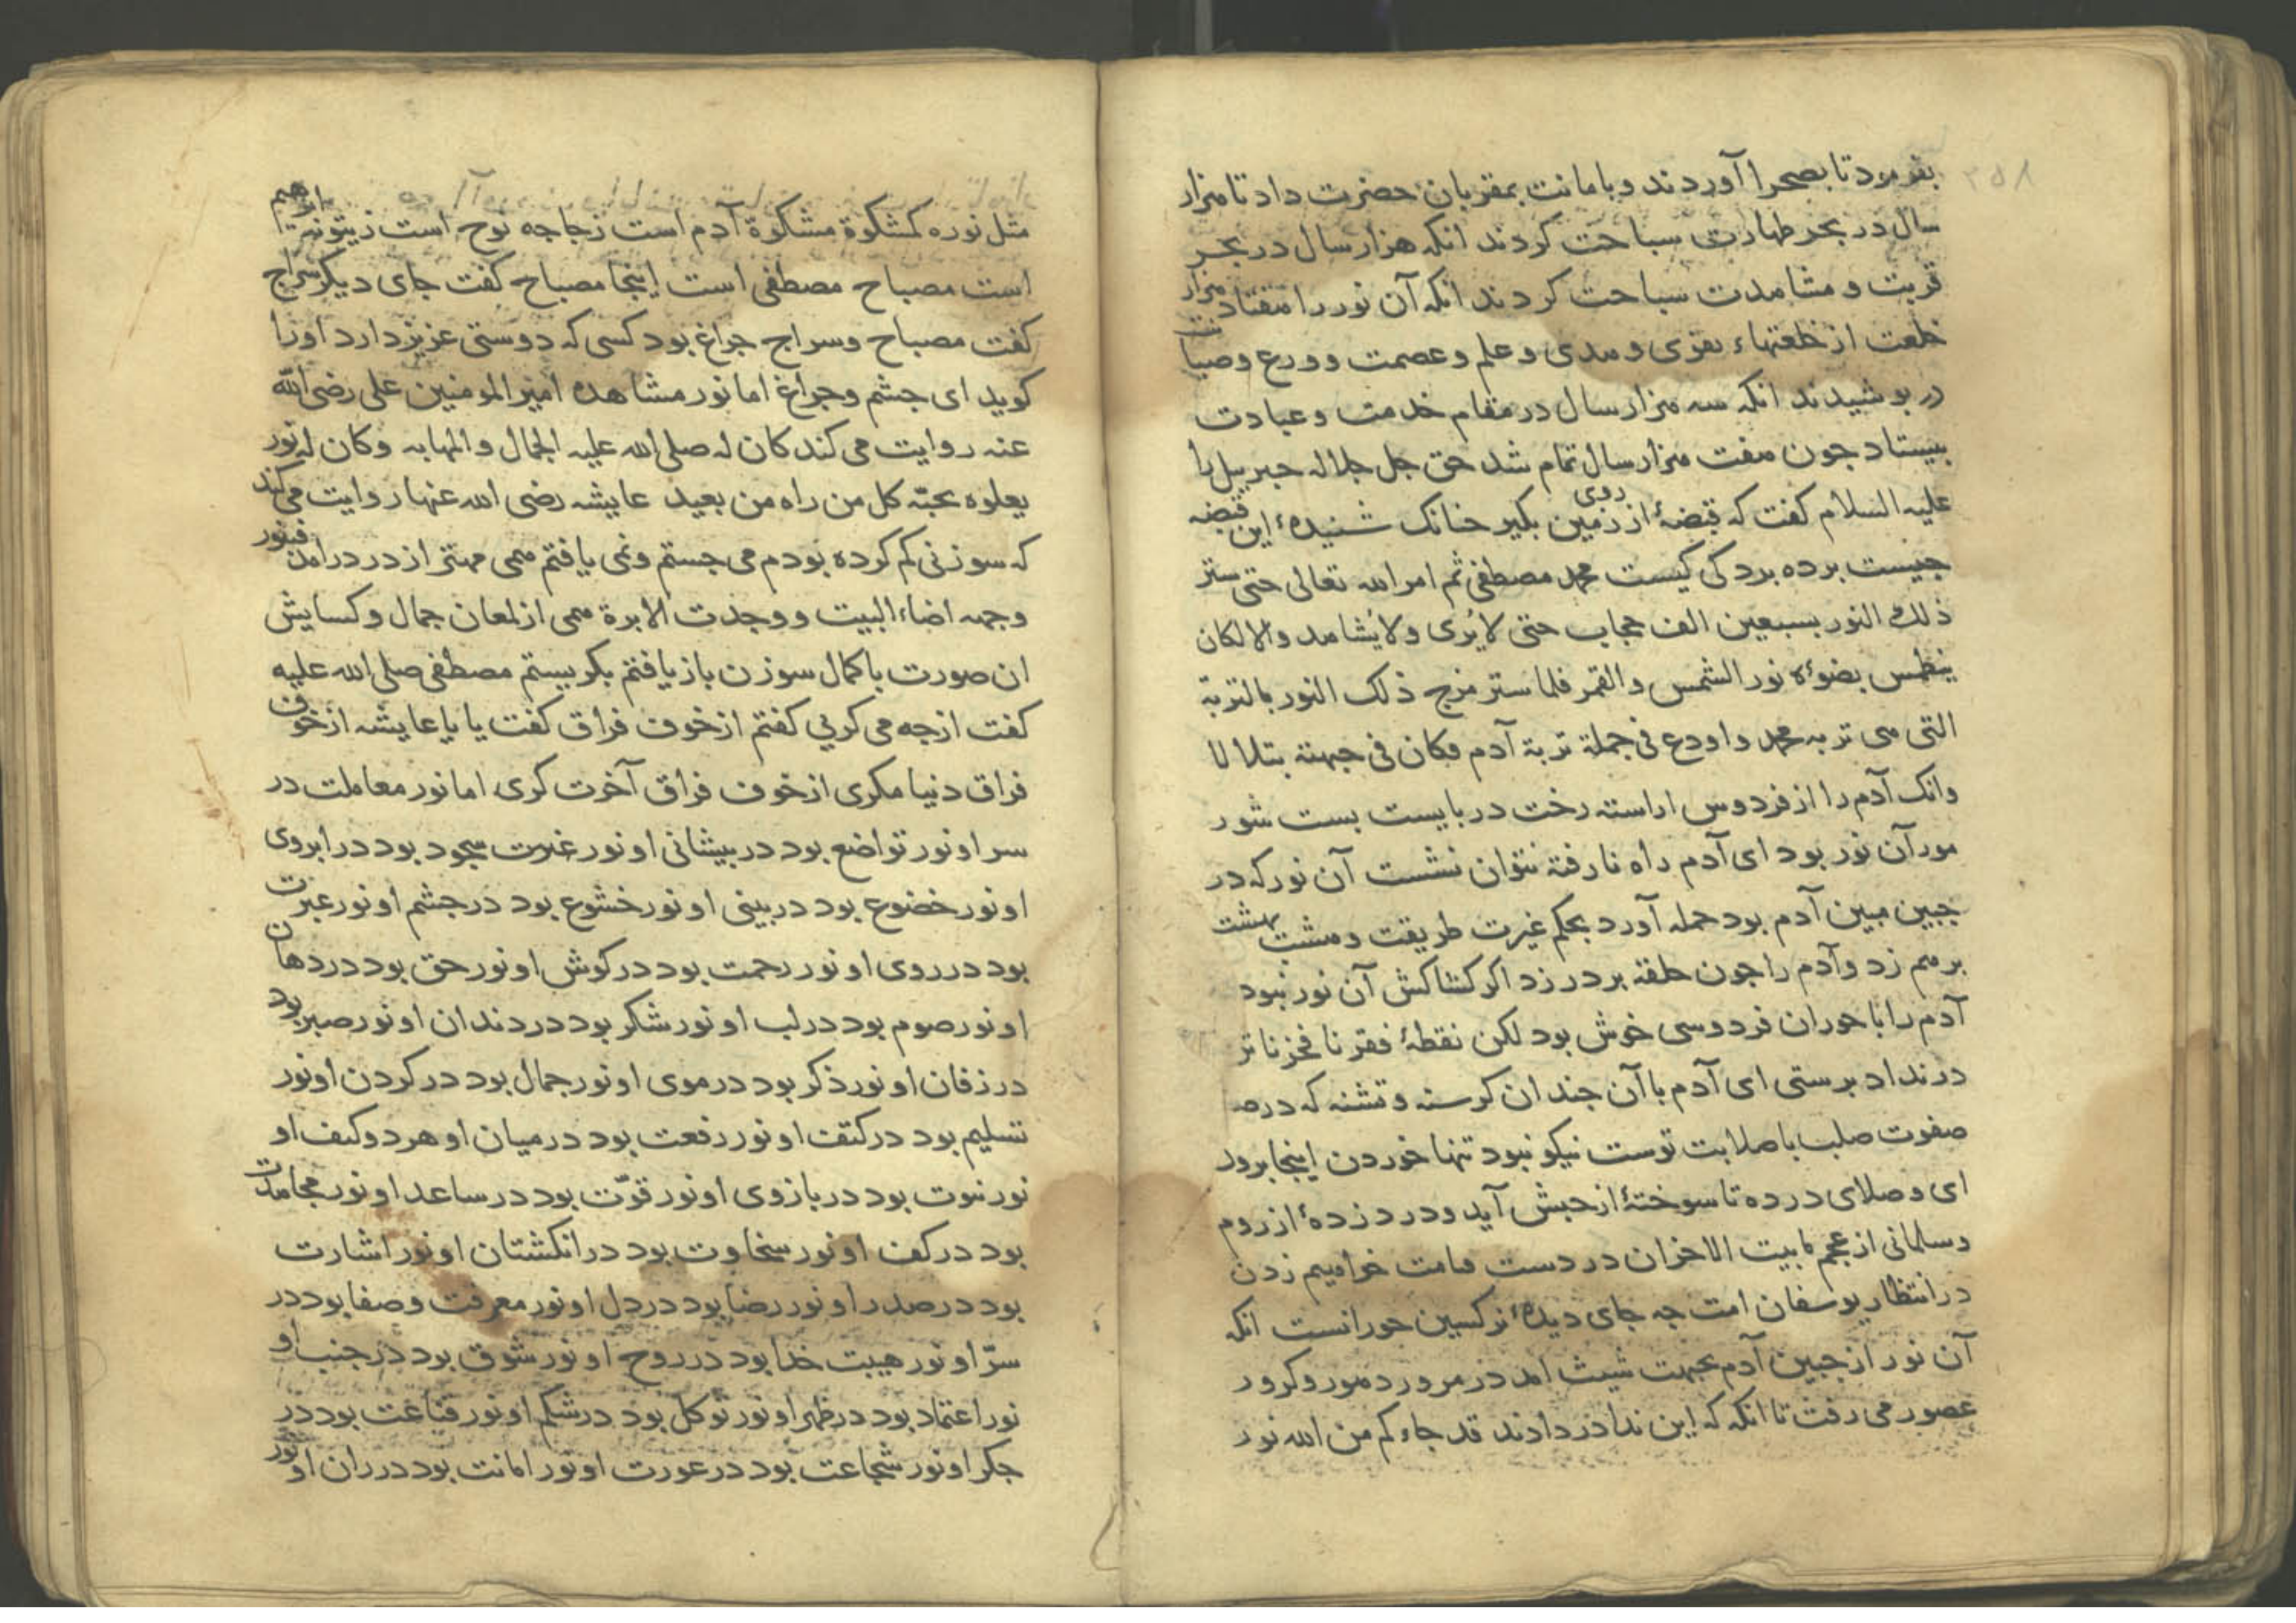 ۳۵۸
بفرمود تا بصحرا آوردند و بامانت بمقربان حضرت داد تا هزار
سال در بحر طهارت سباحت کردند انکه هزار سال در بحر
قربت و مشاهدت سباحت کردند انکه آن نور را هفتاد هزار
خلعت از خلعتهاء تقوی و هدی و علم و عصمت و ورع و صیانت
در بوشیدند انکه سه هزار سال در مقام خدمت و عبادت
بیستاد جون هفت هزار سال تمام شد حق جل جلاله جبریل را
علیه السلام کفت که قبضهٔ از روی زمین بکیر جنانک شنیدهٔ این قبضه
جیست برده برد کی کیست محمد مصطفی ثم امر الله تعالی حتی ستر
ذلك النور بسبعین الف حجاب حتی لا یُری ولا یُشاهد والا لکان
ینطمس بضوئه نور الشمس والقمر فلما ستر مزج ذلك النور بالتربة
التی هی تربه محمد و اودع فی جملة تربة آدم فکان فی جبهته یتلالا
وانک آدم را از فردوس اراسته رخت دربایست بست شور
مور آن نور بود ای آدم راه نا رفته نتوان نشست آن نور که در
جبین مبین آدم بود حمله آورد بحکم غیرت طریقت و هشت بهشت
برهم زد و آدم را جون حلقه بر در زد اکر کشاکش آن نور نبود
آدم را با حوران فردوسی خوش بود لکن نقطهٔ فقر نا فخر نا تر
در نداد برستی ای آدم با آن جندان کرسنه و تشنه که در
صفوت صلب با صلابت توست نیکو نبود تنها خوردن اینجا برور
ای و صلای در ده تا سوختهٔ از حبش آید و درد زدهٔ از روم
و سلمانی از عجم تا بیت الاحزان در دست مامت خواهیم زدن
در انتظار یوسفان امت جه جای دیدهٔ نرکسین حورانست انکه
آن نور از جبین آدم بجبهت شیث امد در مرور دهور و کرور
عصور می رفت تا انکه که این ندا در دادند قد جاءکم من الله نور
مثل نوره کمشکوة مشکوة آدم است زجاجه نوح است زیتونه ابراهیم
است مصباح مصطفی است اینجا مصباح کفت جای دیکر سراج
کفت مصباح و سراج جراغ بود کسی که دوستی عزیز دارد اورا
کوید ای جشم و جراغ اما نور مشاهده امیر المومنین علی رضی الله
عنه روایت می کند کان له صلی الله علیه الجمال والمهابه وکان له نور
یعلوه یحبّه کل من راه من بعید عایشه رضی الله عنها روایت می کند
که سوزنی کم کرده بودم می جستم و نمی یافتم همی مهتر از در درامد فبنور
وجهه اضاء البیت و وجدت الابرة همی از لمعان جمال و کسایش
ان صورت با کمال سوزن باز یافتم بکریستم مصطفی صلی الله علیه
کفت از جه می کریی کفتم از خوف فراق کفت یا یا عایشه از خوف
فراق دنیا مکری از خوف فراق آخرت کری اما نور معاملت در
سر او نور تواضع بود در بیشانی او نور غرت سجود بود در ابروی
او نور خضوع بود در بینی او نور خشوع بود در جشم او نور عبرت
بود در روی او نور رحمت بود در کوش او نور حق بود در دهان
او نور صوم بود در لب او نور شکر بود در دندان او نور صبر بود
در زفان او نور ذکر بود در موی او نور جمال بود در کردن او نور
تسلیم بود در کتف او نور رفعت بود در میان او هر دو کتف او
نور نبوت بود در بازوی او نور قوّت بود در ساعد او نور مجاهدت
بود در کف او نور سخاوت بود در انکشتان او نور اشارت
بود در صدر او نور رضا بود در دل او نور معرفت و صفا بود در
سرّ او نور هیبت خدا بود در روح او نور شوق بود در جنب او
نور اعتماد بود در ظهر او نور توکل بود در شکم او نور قناعت بود در
جکر او نور شجاعت بود در عورت او نور امانت بود در ران او نور